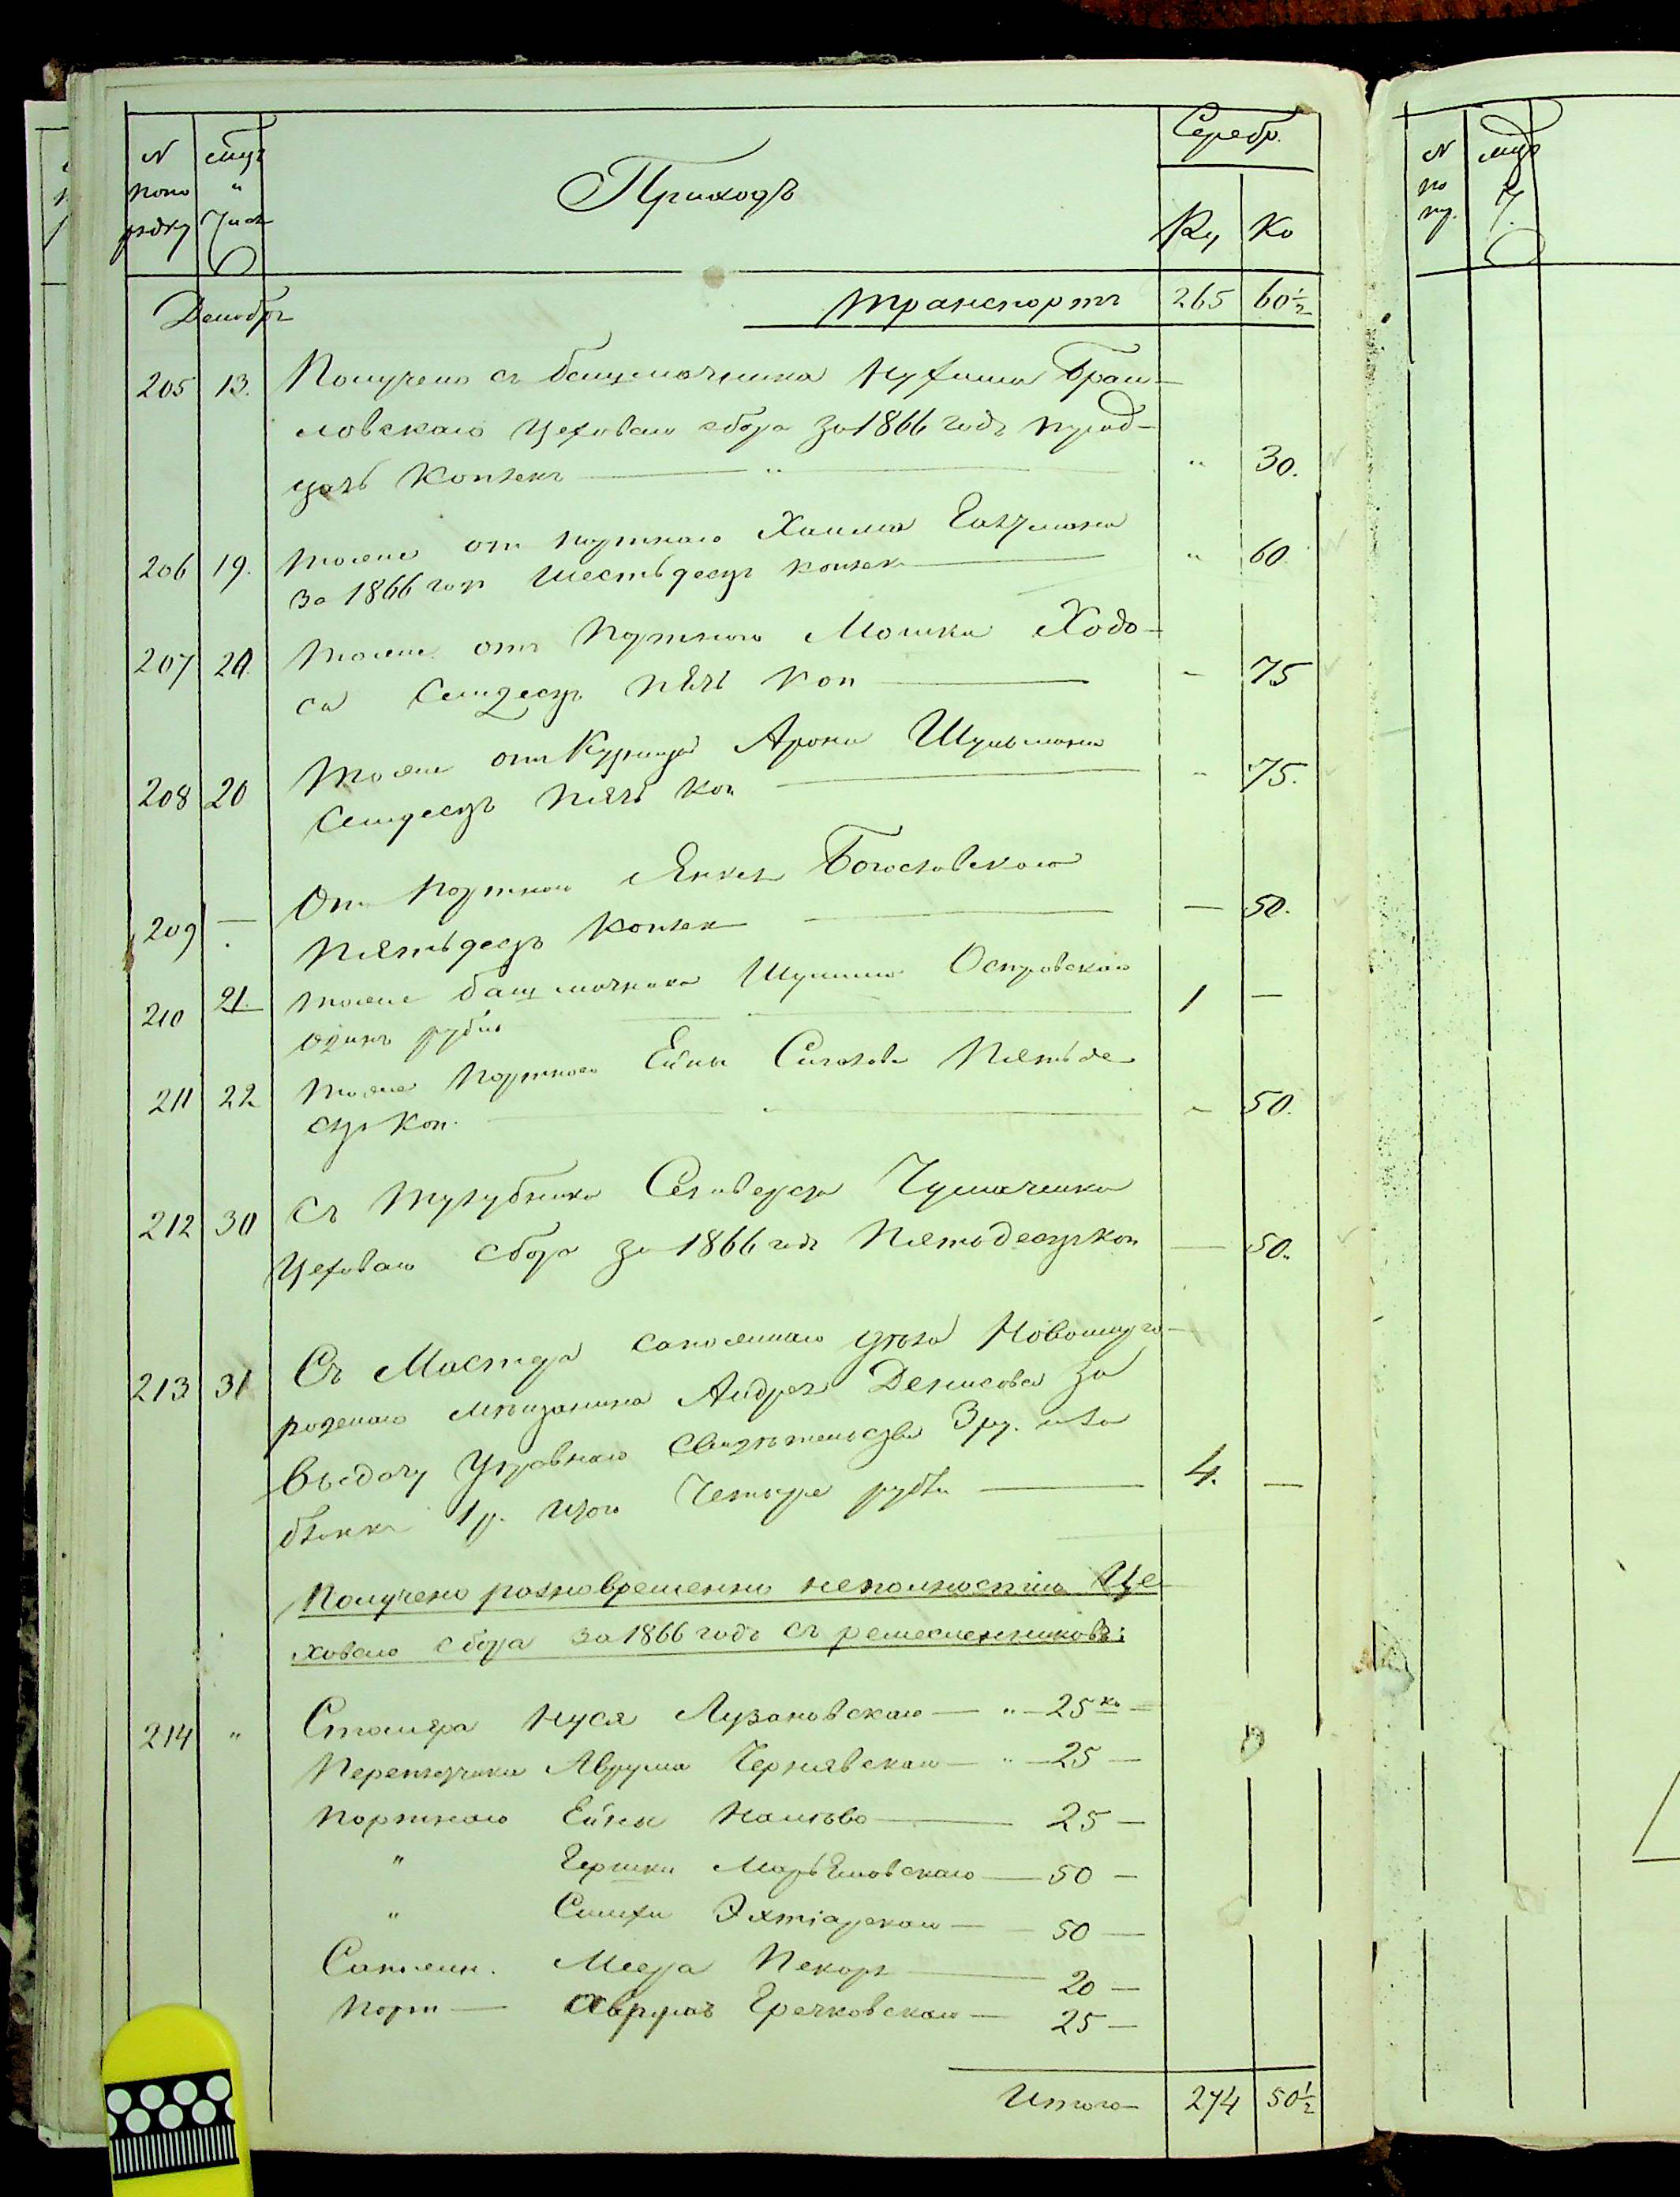 N мцъ Приходъ Серебр.
поно "
рядку Числ Ру Ко
Декабрь Транспортъ 265 60½
205 13. Получено съ башмачника Нухима Браи-
ловскаго Цеховаго сбора за 1866 годъ трид-
цать Копѣекъ " " 30.
206 19. Тоже от портнаго Хаима Гальмана
за 1866 годъ Шестьдесятъ копѣек " 60
207 20. Тоже отъ Портного Мошки Ходо-
са Семдесятъ пять коп - 75
208 20 Тоже от Арона Шульмана
Семдесятъ пять коп " 75.
209 — От Портного Янкеля Богословскаго
пятьдесятъ копѣек — 50.
210 21. Тоже башмачника Шулима Островскаго
одинъ рубль 1 —
211 22 Тоже Портного Ейны Сиголова пятьде
сятъ Коп. - 50.
212 30 Съ Тулубника Селиверста Чумаченка
Цеховаго сбора за 1866 годъ пятьдесятъ коп — 50.
213 31 Съ Мастера сапожнаго цѣха Новомирго-
родскаго мѣщанина Андрея Денисова за
выдачу Управнаго свидѣтельства 3 ру. и за
бланкъ 1 р. итого Четыре рубли 4. —
Получено разновременно неполностію Це
ховаго сбора за 1866 годъ съ ремесленниковъ:
214 " Столяра Нуся Лузановскаго — " — 25 ко —
Переплетчика Аврума Чернявскаго — " — 25 —
Портнаго Ейны 25 —
" Гершки Марьямовскаго — 50 —
" Симхи Эхтіарскаго — 50 —
Сапожн. Меера Пекаръ 20 —
Порт — Аврумъ Гречковскаго — 25 —
Итого 274 50½
N мцъ
по Ч.
пор.